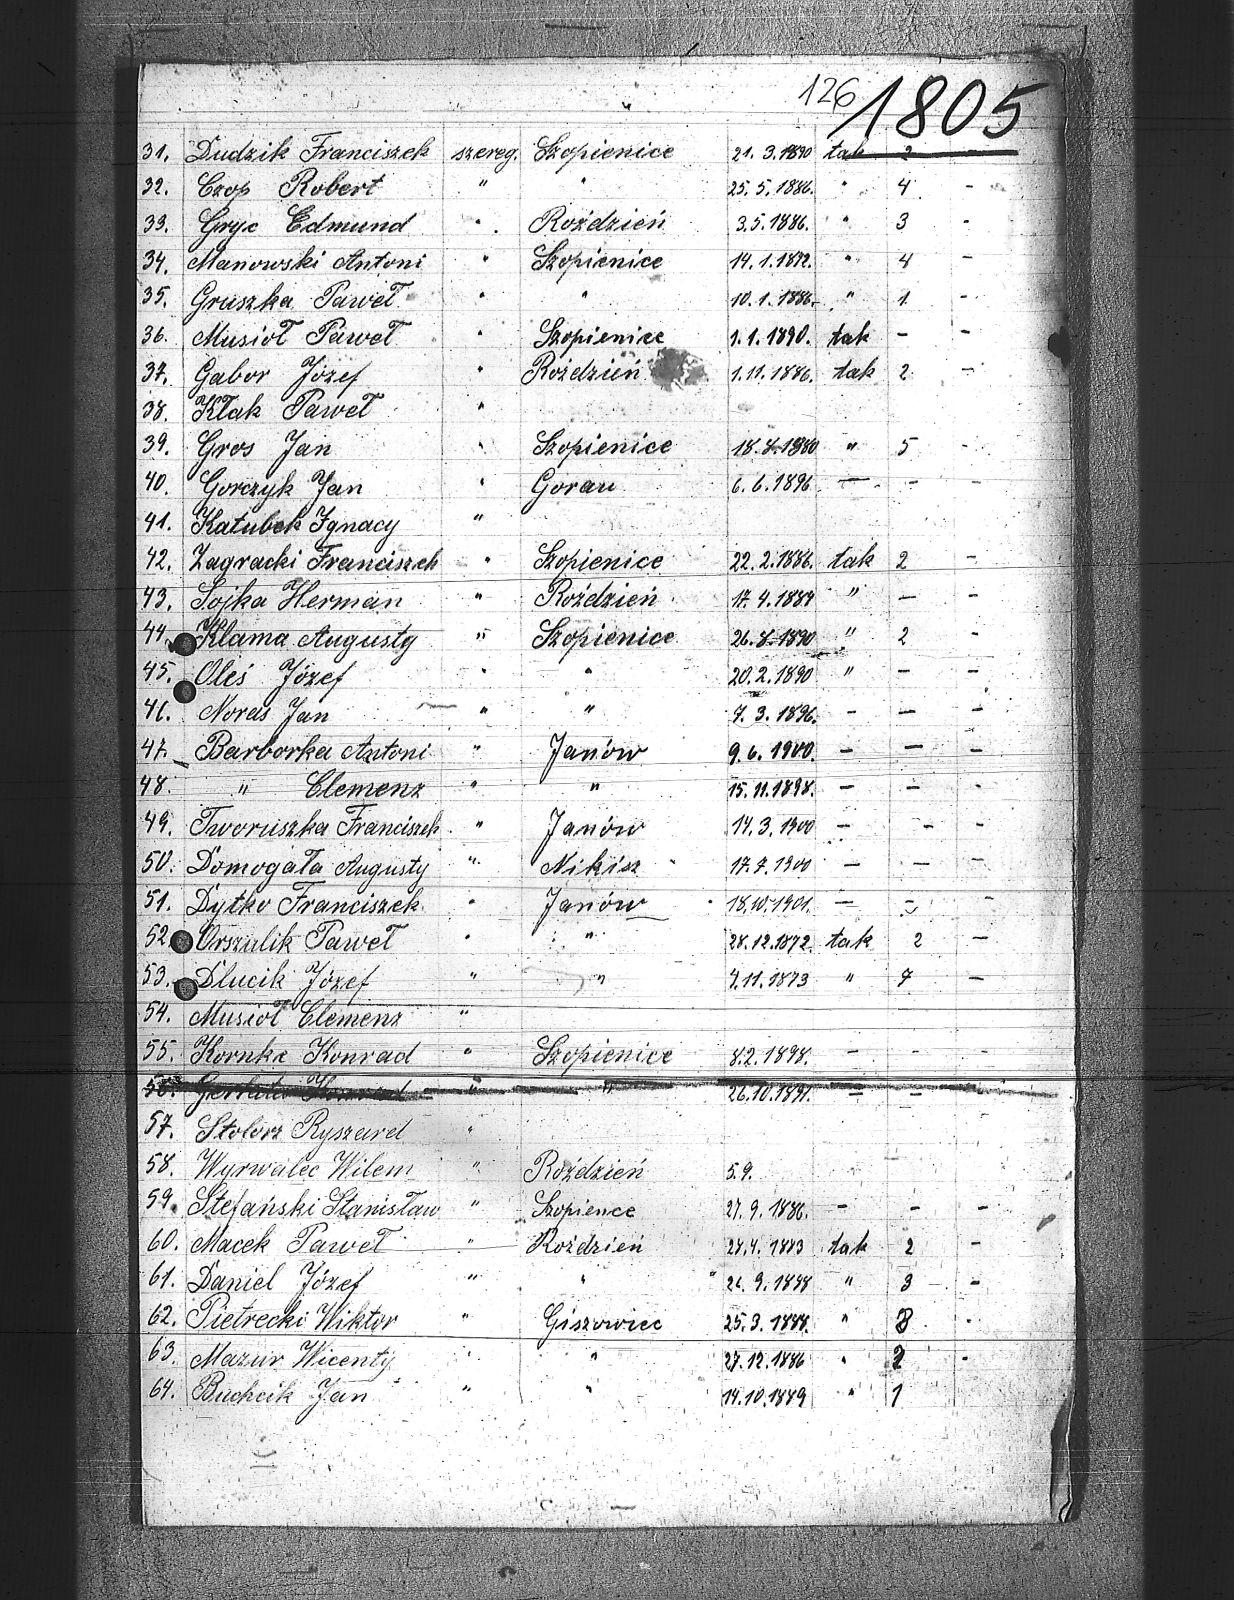 126 1805
31. Dudzik Franciszek szereg. Szopienice 21. 3. 1890 tak 2
32. Czop Robert " " 25. 5. 1886. " 4 -
33. Gryc Edmund " Roździeń 3. 5. 1886. " 3 -
34. Manowski Antoni " Szopienice 14. 1. 1872. " 4 -
35. Gruszka Paweł " " 10. 1. 1886. " 1 -
36. Musioł Paweł " Szopienice 1. 1. 1890. tak - -
37. Gabor Józef " Roździeń 1. 11. 1886. tak 2 -
38. Kłak Paweł "
39. Gros Jan " Szopienice " 5 -
40. Gorczyk Jan " Gorau 6. 6. 1896 - - -
41. Kałubek Ignacy "
42. Zagracki Franciszek " Szopienice 22. 2. 1886. tak 2 -
43. Sojka Herman " Roździeń " - -
44. Klama Augusty " Szopienice 26. 8. 1890 " 2 -
45. Oleś Józef " " 20. 2. 1890 " - -
46. Noras Jan " " 7. 3. 1896. - - -
47. Barborka Antoni " Janów 9. 6. 1900. - - -
48. " Clemenz " " 15. 11. 1898. - - -
49. Tworuszka Franciszek " Janów 14. 3. 1900 - - -
50. Domogała Augusty " Nikisz 17. 7. 1900 - - -
51. Dytko Franciszek " Janów 18. 10. 1901. - - -
52. Orszulik Paweł " " 28. 12. 1872. tak 2 -
53. Dlucik Józef " " 7. 11. 1873 " 7 -
54. Musioł Clemenz "
55. Kornke Konrad " Szopienice 8. 2. 1898. - - -
56. Konrad " " 26. 10. 1891. - - -
57. Stolorz Ryszard "
58. Wyrwalec Wilem " Roździeń 5. 9.
59. Stefański Stanisław " Szopience 27. 9. 1886. - - -
60. Macek Paweł " Roździeń tak 2 -
61. Daniel Józef " " " 3 -
62. Pietrecki Wiktor " Giszowiec 25. 3. 1888. " 8 -
63. Mazur Wicenty " " 27. 12. 1886 " 2 -
64. Buchcik Jan " " 14. 10. 1889 " 1